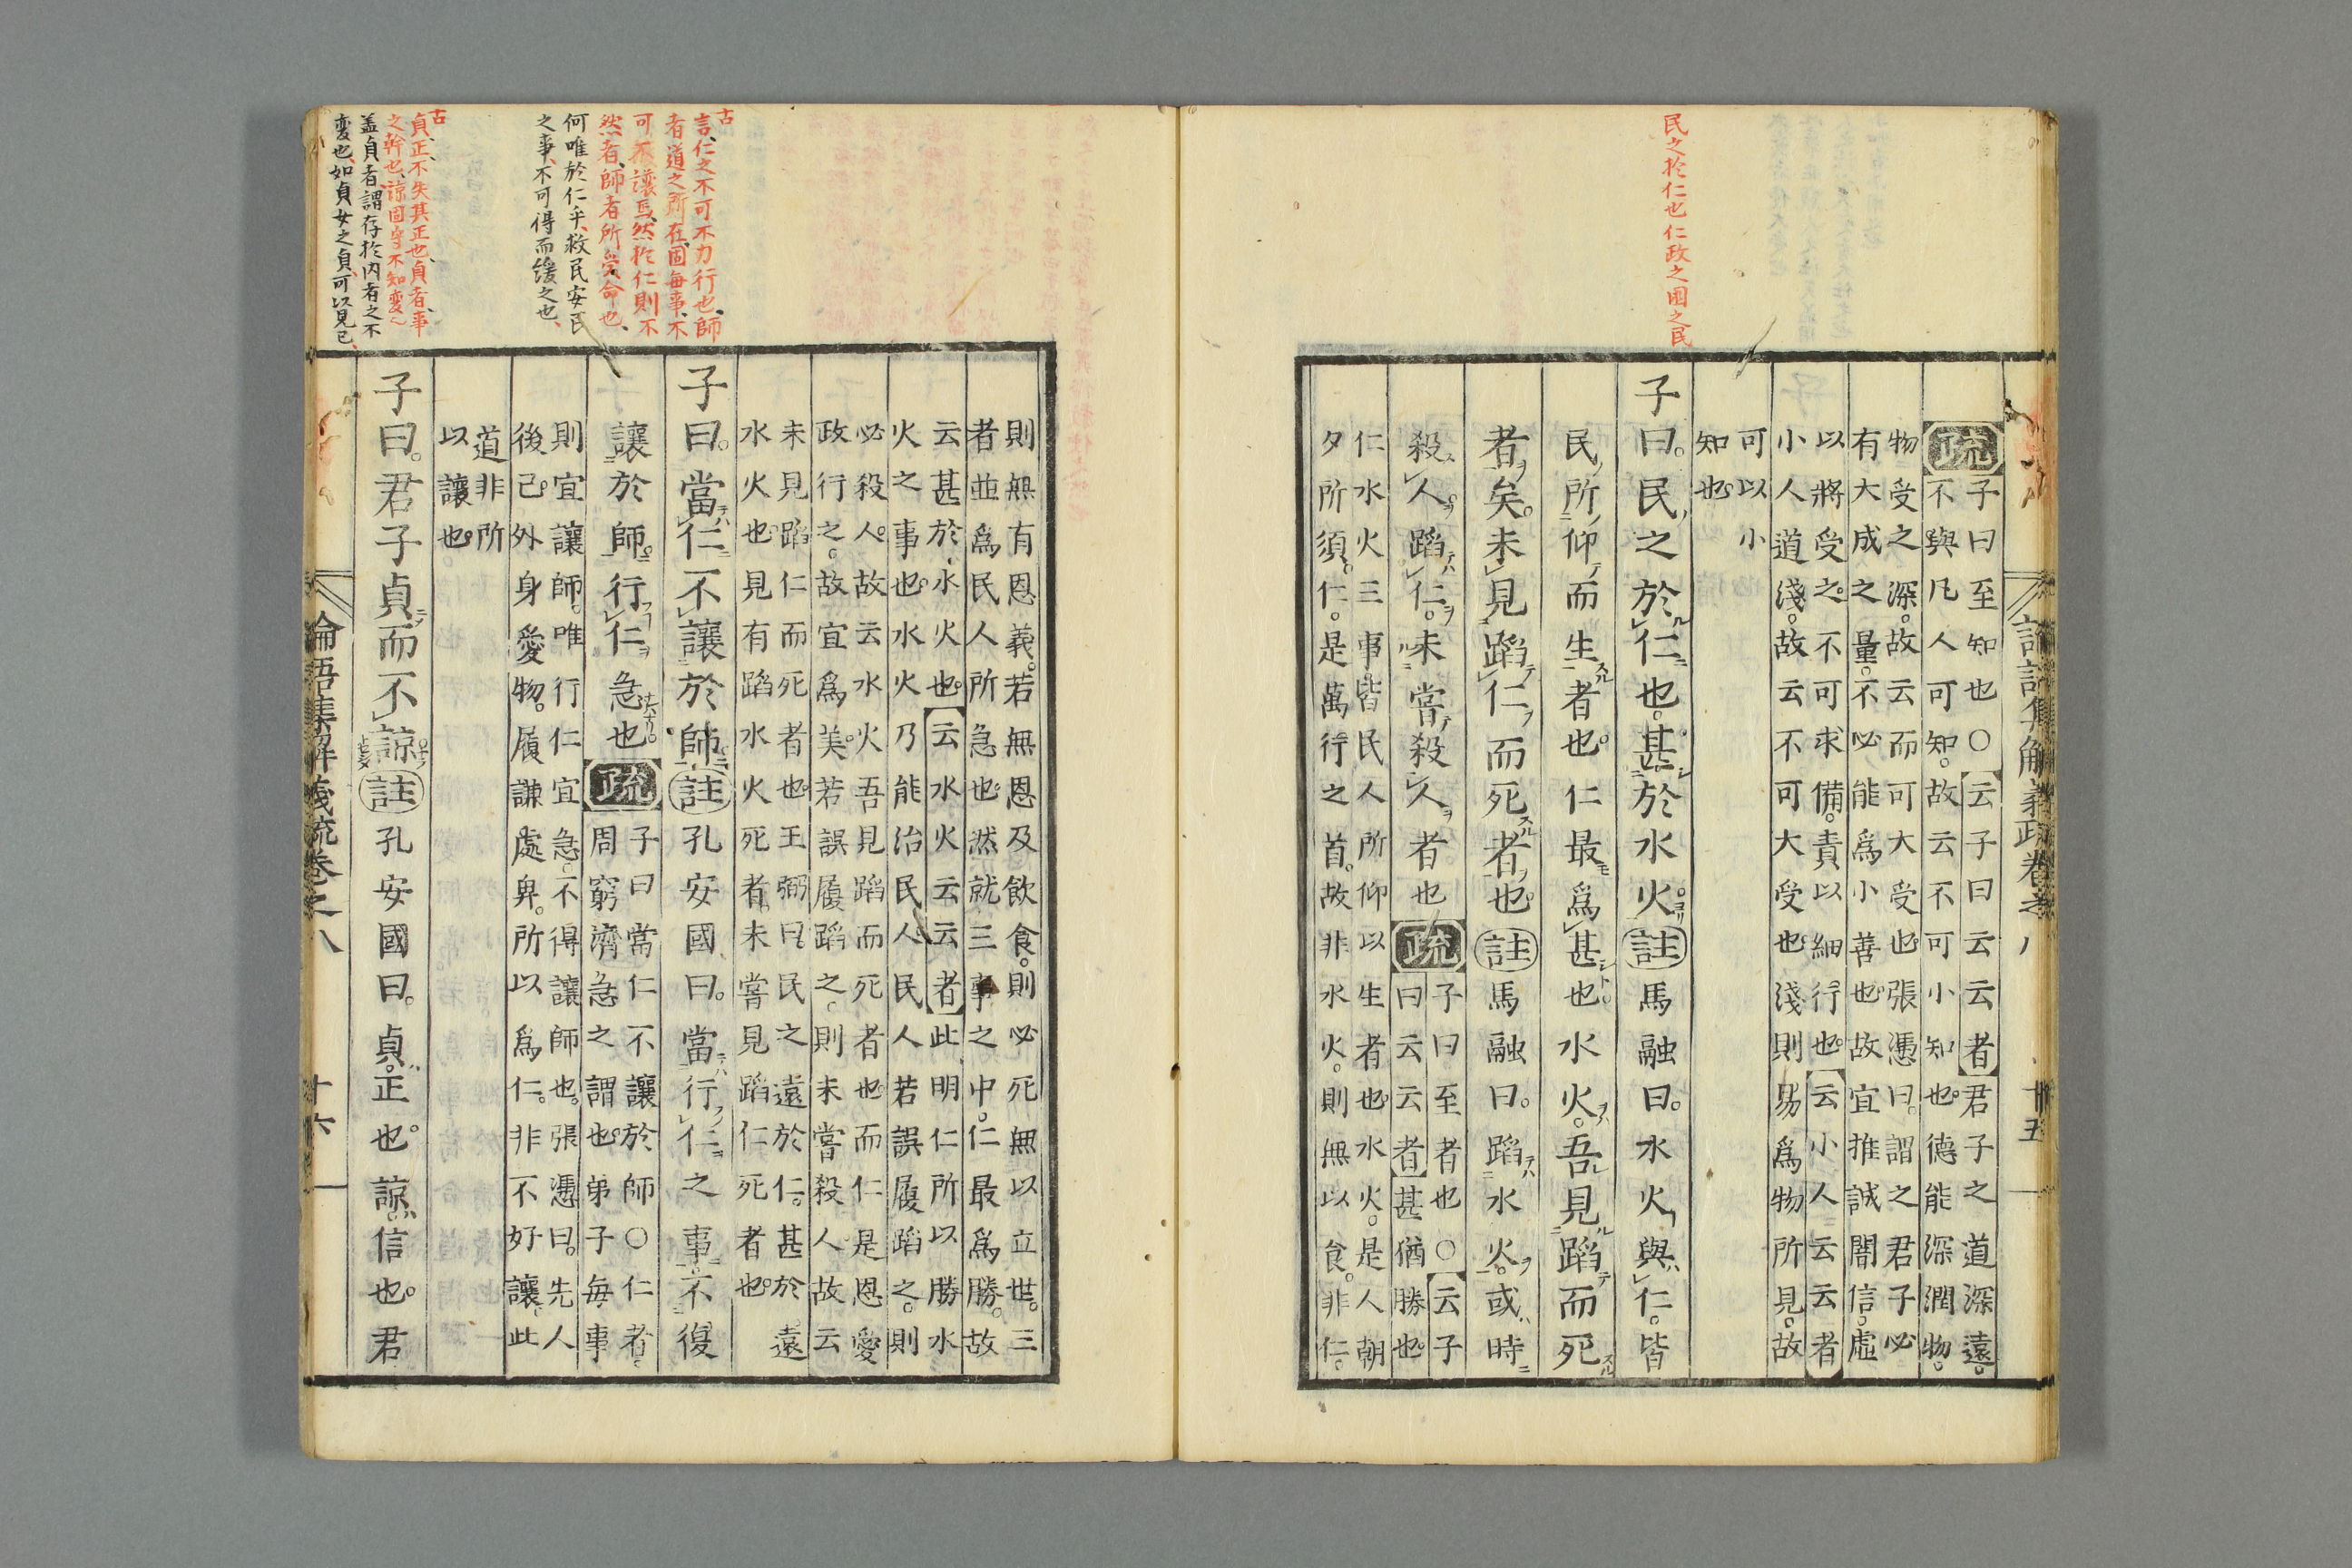 民之於仁也仁政之困之民
疏子曰至知也〇云子曰云云者君子之道深遠。
不與凡人可知。故云不可小知也。德能深潤物。
物受之深。故云而可大受也張憑曰。謂之君子必
有大成之量。不必能爲小善也故宜推誠闇信。虛
以將受之。不可求備。責以細行也。云小人云云者
小人道淺。故云不可大受也。淺則易爲物所見。故
可以小
知也。
子曰。民之於仁也。甚於水火。註馬融曰。水火與仁。皆
民所仰而生者也。仁最爲甚也水火。吾見蹈而死
者矣。未見蹈仁而死者也。註馬融曰。蹈水火。或時
殺人蹈仁。未嘗殺人者也疏子曰至者也〇云子
曰云云者甚猶勝也。
仁水火三事。皆民人所仰以生者也。水火。是人朝
夕所須。仁。是萬行之首。故非水火。則無以食。非仁。
則無有恩義。若無恩及飲食。則必死無以立世。三
者並爲民人所急也。然就三事之中。仁最爲勝。故
云甚於水火也。云水火云云者此明仁所以勝水
火之事也。水火乃能治民人民人若誤履蹈之。則
必殺人。故云水火吾見蹈而死者也。而仁是恩愛
政行之。故宜爲美。若誤履蹈之。則未嘗殺人。故云
未見蹈仁而死者也。王弼曰。民之遠於仁。甚於遠
水火也。見有蹈水火死者。未嘗見蹈仁死者也。
子曰。當仁不讓於師。註孔安國曰。當行仁之事。不復
讓於師。行仁急也。疏子曰當仁不讓於師〇仁者。
周窮濟急之謂也。弟子每事
則宜讓師。唯行仁宜急。不得讓師也。張憑曰。先人
後己。外身愛物。履謙處卑。所以爲仁。非不好讓。此
道非所
以讓也。
子曰。君子貞而不諒註孔安國曰。貞。正也。諒。信也。君
論語集解義疏卷之八
十六
古
言、仁之不可不力行也、師
者、道之所在、固每事、不
可不讓焉、然於仁則不
然者、師者所受命也、
何唯於仁乎、救民安民
之事、不可得而緩之也、
古
貞、正、不失其正也、貞者、事
之幹也、諒固守不知変〻
盖貞者謂存於内者之不
変也、如貞女之貞、可以見已、